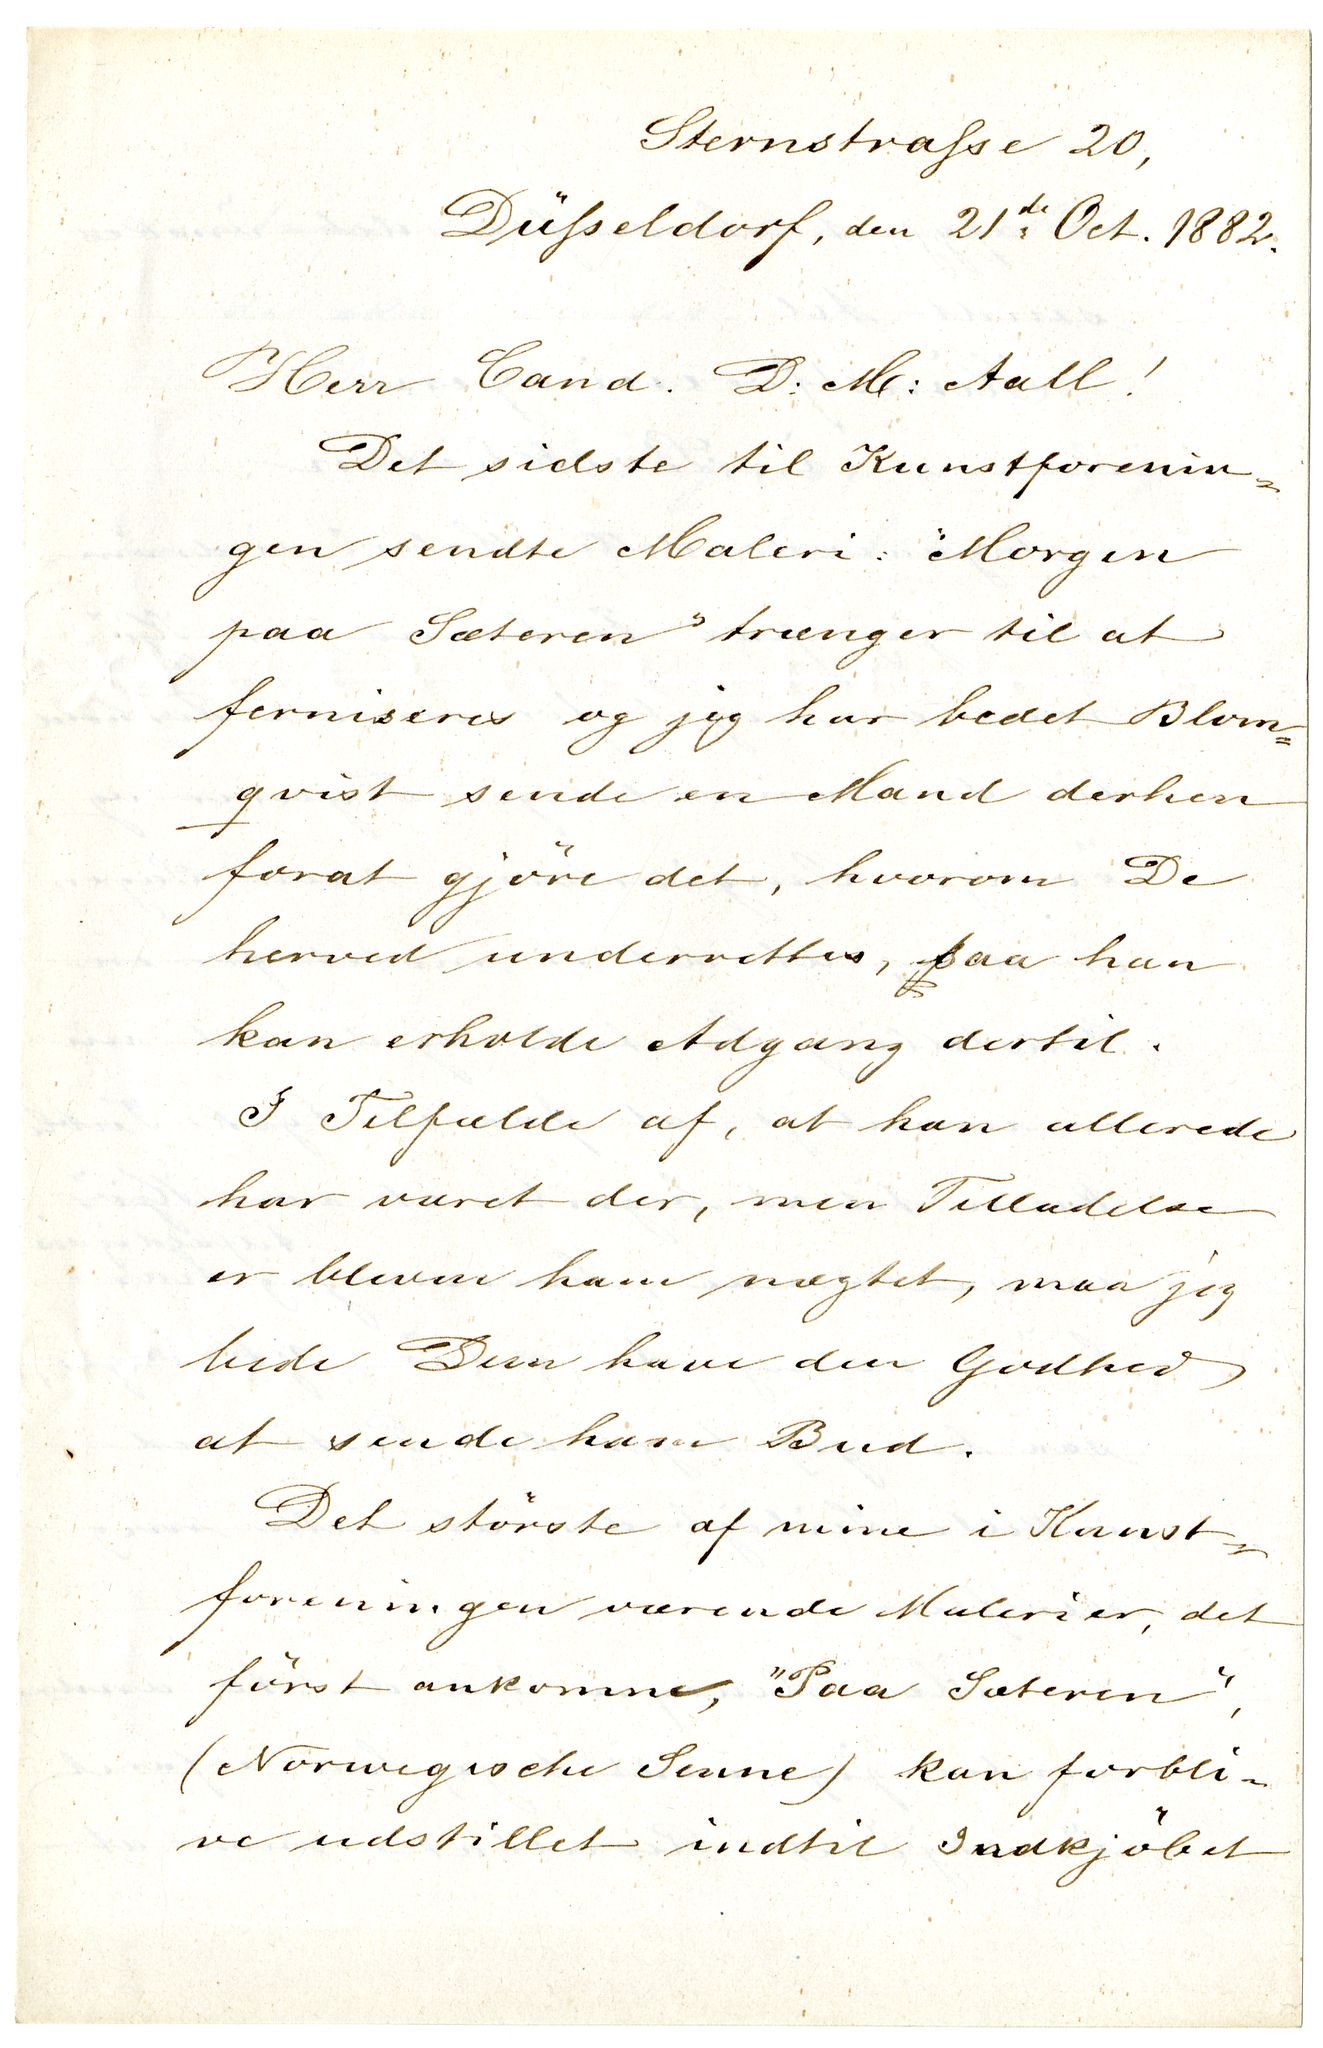 Sternstrasse 20,
Düsseldorf, den 21de Oct. 1882.
Herr Cand. D: M: Aall!
Det sidste til Kunstforenin=
gen sendte Maleri: "Morgen
paa Sæteren" trænger til at
ferniseres og jeg har bedet Blom=
qvist sende en Mand derhen
forat gjöre det, hvorom De
herved underrettes, saa han
kan erholde Adgang dertil.
I Tilfælde af, at han allerede
har været der, men Tilladelse
er bleven ham nægtet, maa jeg
bede Dem have den Godhed
at sende ham Bud.
Det störste af mine i Kunst=
foreningen værende Malerier, det
först ankomne, "Paa Sæteren",
(Norwegische Senne) kan forbli=
ve udstillet indtil Indkjöbet